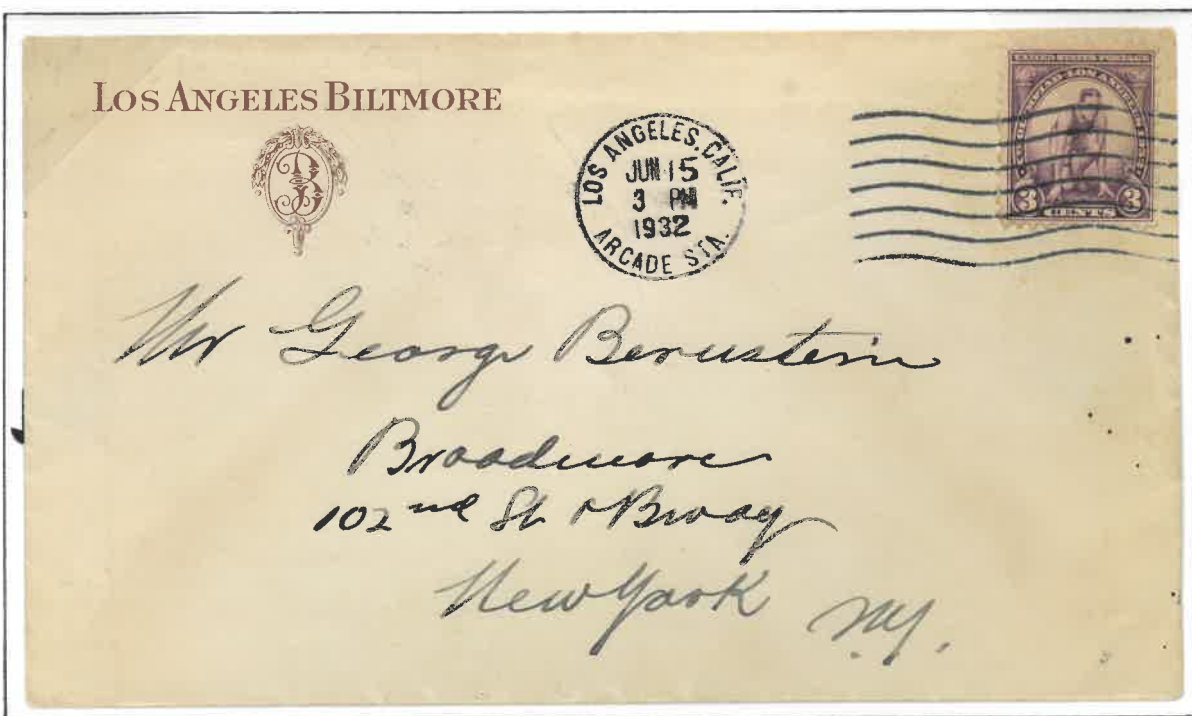 LOS ANGELES BILTMORE
LOS ANGELES, CALIF.
JUN 15
3 PM
1932
ARCADE STA.
3 CENTS 3
Mr George Bernstein
Broadmoore
102nd St & Bway
New York
N.Y.